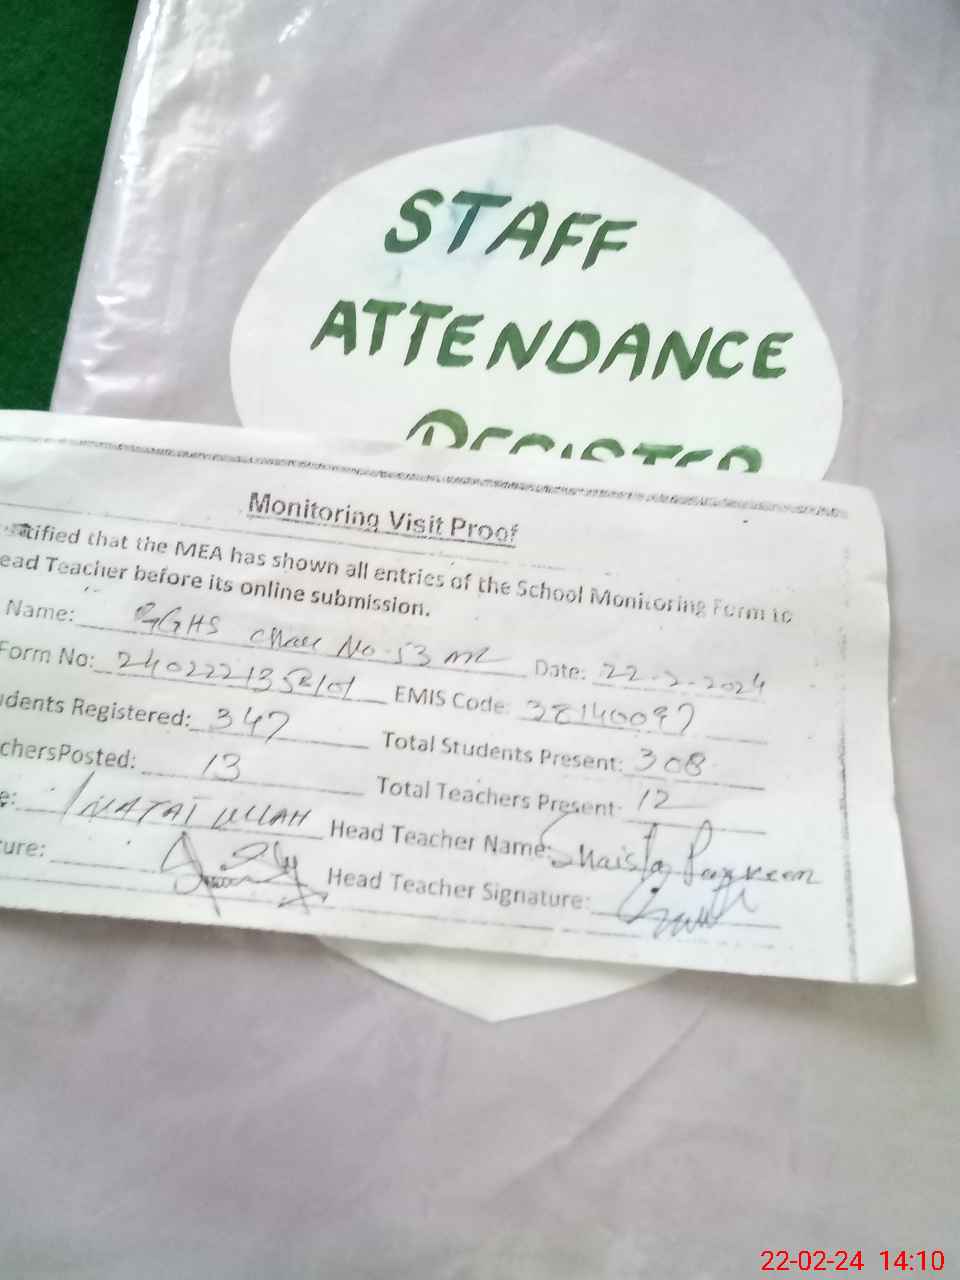 STAFF
ATTENDANCE
REGISTER
Monitoring Visit Proof
tified that the MEA has shown all entries of the School Monitoring Form to
ead Teacher before its online submission.
Name: GGHS Chak No. 53 ML Date: 22-2-2024
Form No: EMIS Code: 38140097
dents Registered: 347 Total Students Present: 308
chersPosted: 13 Total Teachers Present: 12
e: INATAI ULLAH Head Teacher Name: Shaista Parveen
ure: Head Teacher Signature:
22-02-24 14:10